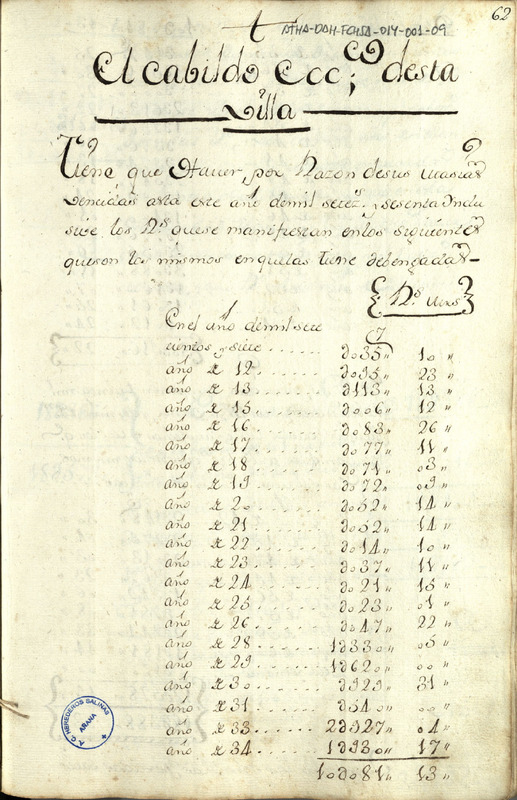 62
ATHA-DAH-FCHSA-014-001-09
t
El cabildo Ecc;co desta
Villa
Tiene que Haver, por Razon de sus
Vencidas asta este año de mil setez.s y sesenta Inclu
sive los Rs que se manifiestan en los siguientes
que son los mismos en quelas tiene debengadas
Rs mrs
En el año de mil sete
cientos y siete ...... do35 10 "
año de 12 ...... do95 23 "
año de 13 ...... d113 13 "
año de 15 ...... doo6 12 "
año de 16 ...... do83 26 "
año de 17 ...... do77 11 "
año de 18 ...... do71 o3 "
año de 19 ...... do72 o9 "
año de 20 ...... do52 14 "
año de 21 ...... do52 14 "
año de 22 ...... do14 10 "
año de 23 ...... do37 11 "
año de 24 ...... do21 15 "
año de 25 ...... do23 o1 "
año de 26 ...... do47 22 "
año de 28 ...... 1d330 o5 "
año de 29 ...... 1d620 oo "
año de 30 ...... d929 31 "
año de 31 ...... d540 oo "
año de 33 ...... 2d927 o4 "
año de 34 ...... 1d930 17 "
10do81 13 "
A.C. HEREDEROS SALINAS
ARANA